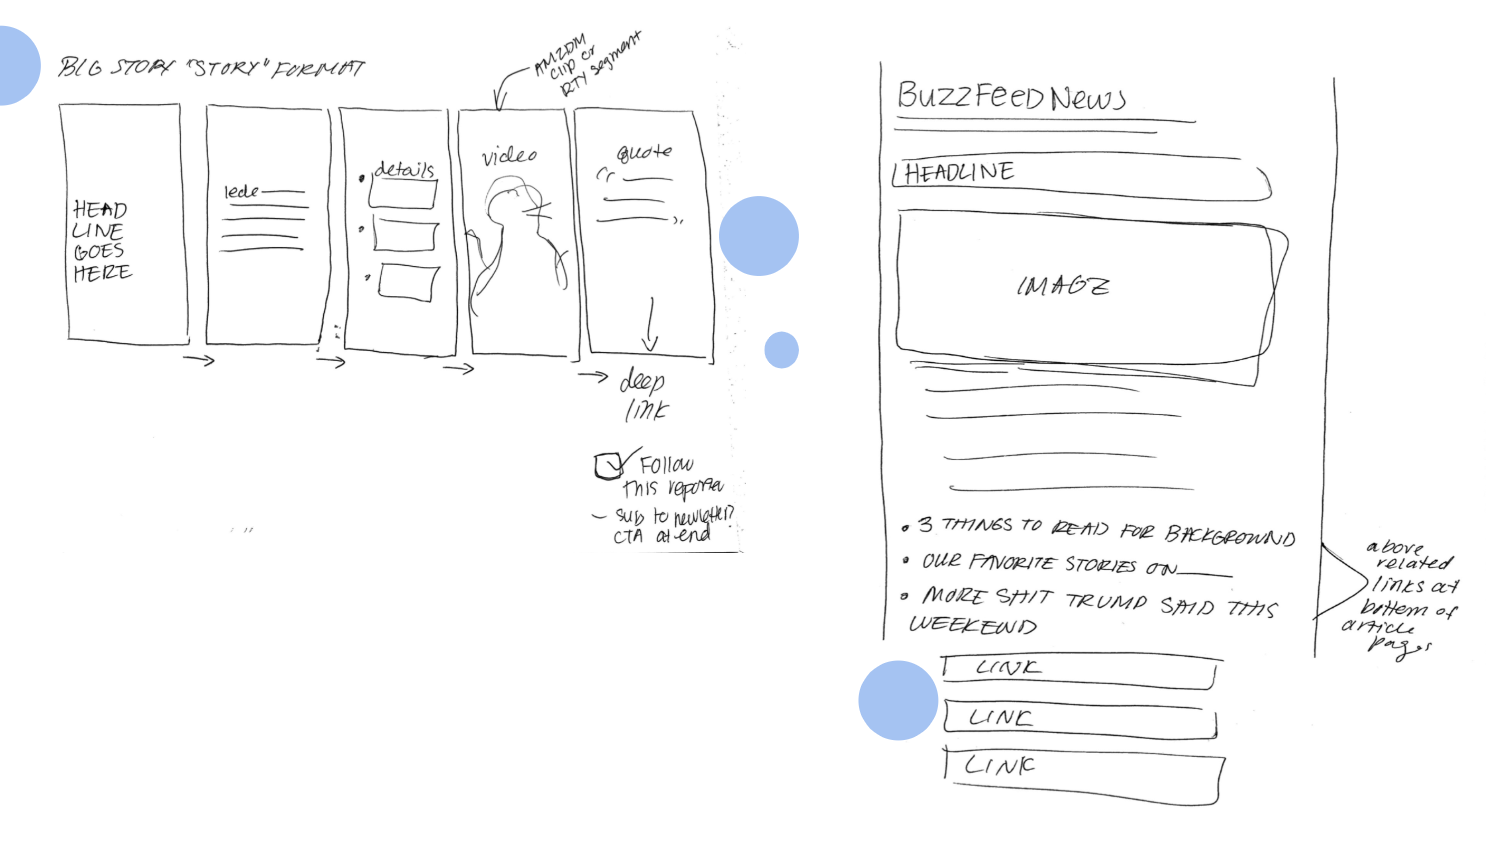 BIG STORY "STORY" FORMAT
AM2DM
clip or
RTY segment
HEAD
LINE
GOES
HERE
lede
details
video
quote
deep
link
Follow
this reporter
- sub to newsletter?
CTA at end
BuzzFeeD News
HEADLINE
IMAGE
• 3 THINGS TO READ FOR BACKGROUND
• OUR FAVORITE STORIES ON____
• MORE SHIT TRUMP SAID THIS
WEEKEND
LINK
LINK
LINK
above
related
links at
bottom of
article
pages